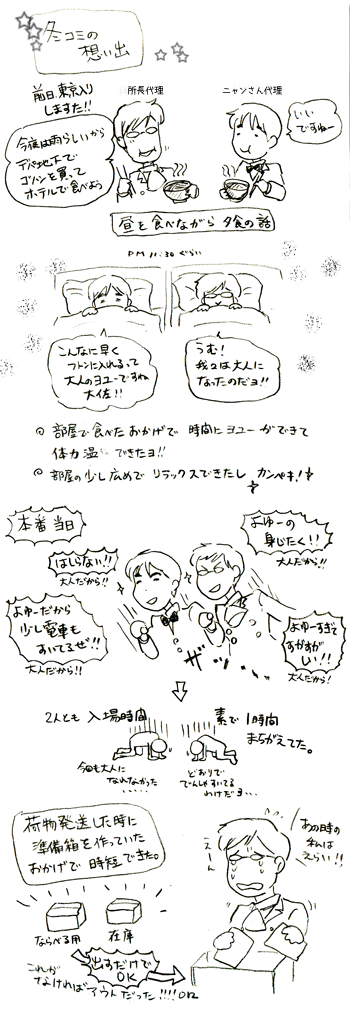 冬コミの
想い出
前日、東京入り
しました!!
所長代理
ニャンさん代理
いい
ですねー
今夜は雨らしいから
デパ地下で
ゴハンを買って
ホテルで食べよう
昼を食べながら夕食の話
PM 11:30ぐらい
こんなに早く
フトンに入れるって
大人のヨユーですね
大佐!!
うむ!
我々は大人に
なったのだヨ!!
◎ 部屋で食べたおかげで 時間にヨユーができて
体力温 できたヨ!!
◎ 部屋の少し広めでリラックスできたし カンペキ!
本番当日
はしらない!!
大人だから!!
よゆーの
身じたく!!
大人だから!!
よゆーだから
少し電車も
すいてるぜ!!
大人だから!!
よゆーすぎて
すがすが
しい!!
大人だから!
ザッ
2人とも 入場時間
素で1時間
まちがえてた。
今回も大人に
なれなかった
……
どおりで
でんしゃすいてる
わけだヨ…
荷物発送した時に
準備箱を作っていた
おかげで時短できた。
ならべる用
在庫
出すだけで
OK
これが
なければアウトだった!!!!orz
えーん
あの時の
私は
えらい!!